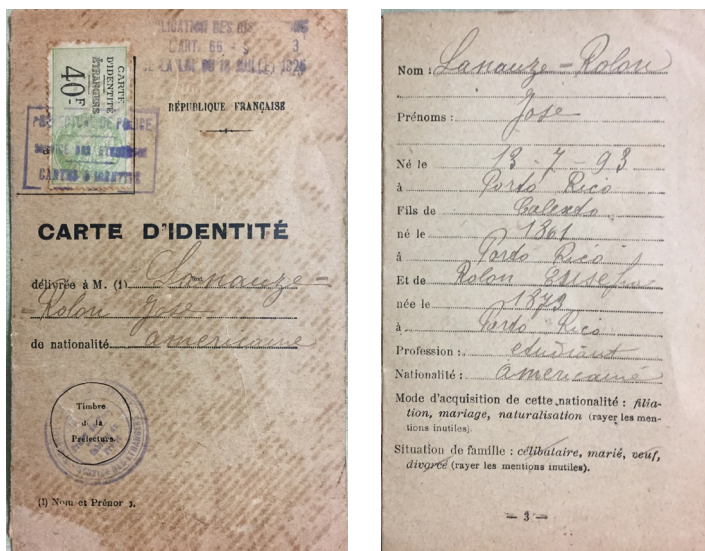 L'ART. 66 - § 3
DE LA LOI DU 13 JUILLET 1925
CARTE
D'IDENTITÉ
ÉTRANGERS
40F
RÉPUBLIQUE FRANÇAISE
PREFECTURE DE POLICE
SERVICE DES ETRANGERS
CARTES D'IDENTITÉ
CARTE D'IDENTITÉ
délivrée à M. (1) Lanauze-
-Rolon José
de nationalité americaine
Timbre
de la
Préfecture.
(1) Nom et Prénoms.
Nom : Lanauze-Rolon
Prénoms : Jose
Né le 13-7-93
à Porto Rico
Fils de
né le 1861
à Porto Rico
Et de Rolon
née le 1873
à Porto Rico
Profession : etudiant
Nationalité : americaine
Mode d'acquisition de cette nationalité : filia-
tion, mariage, naturalisation (rayer les men-
tions inutiles).
Situation de famille : célibataire, marié, veuf,
divorcé (rayer les mentions inutiles).
— 3 —